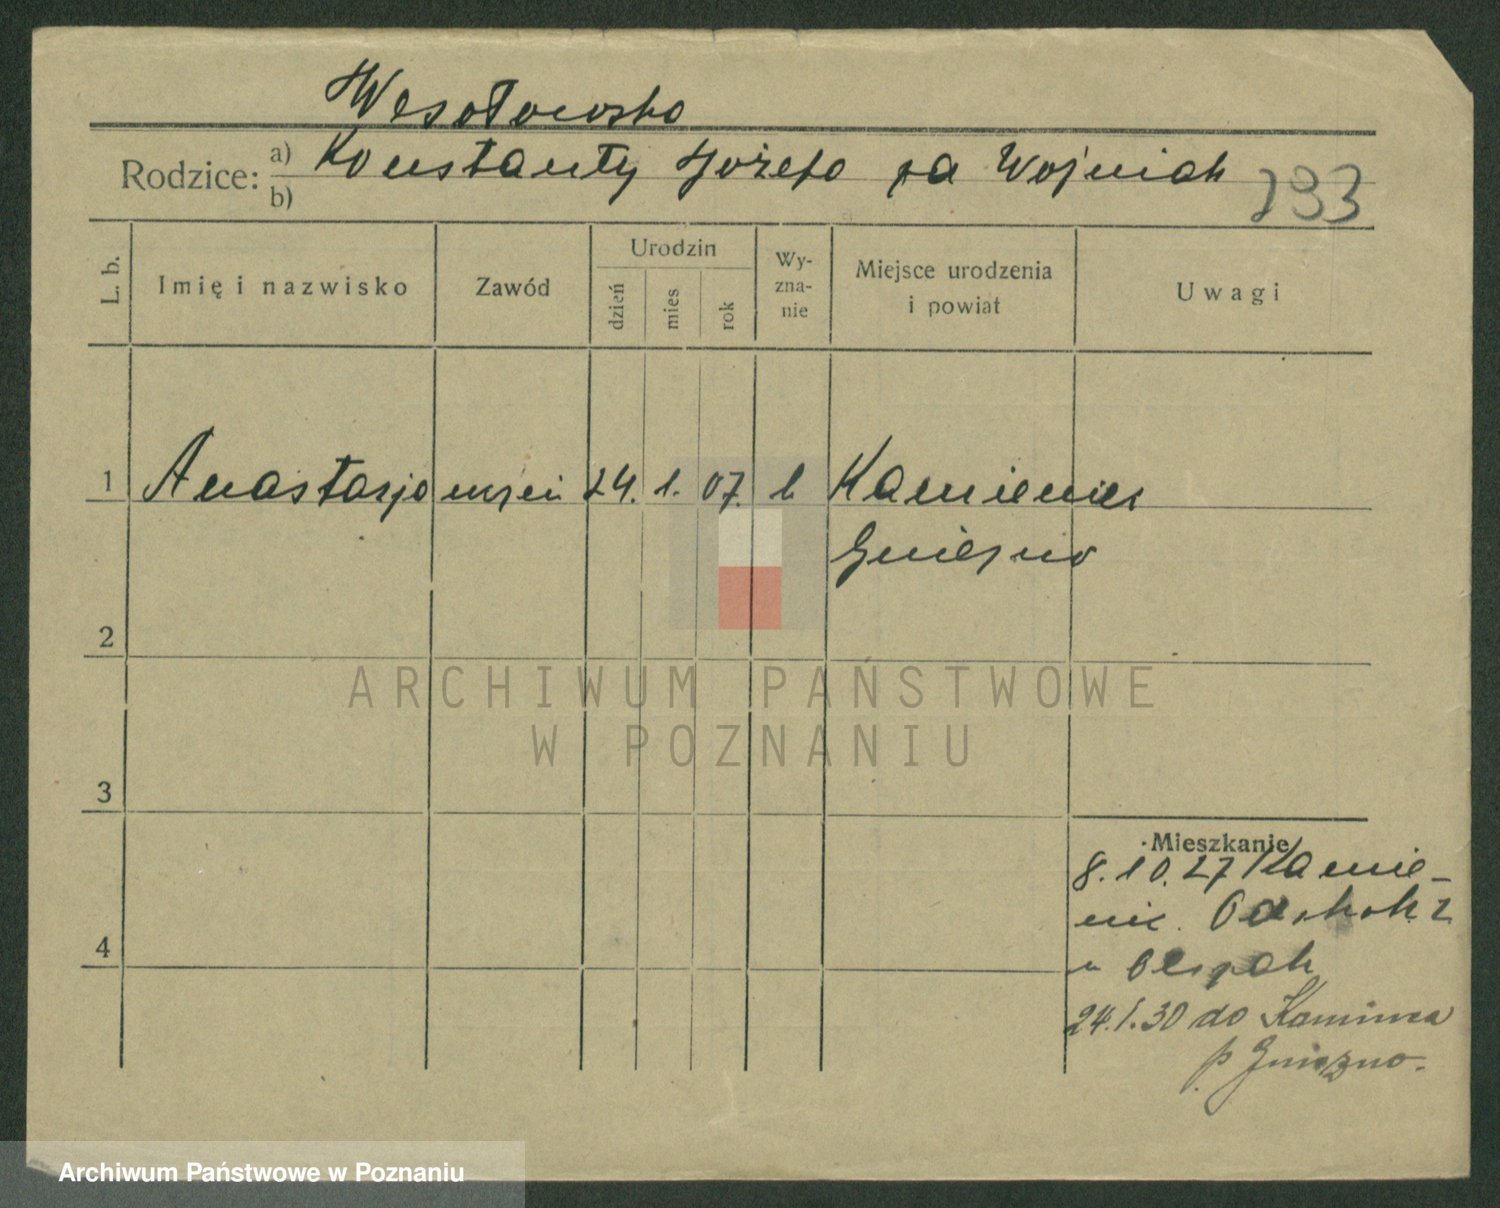 Wesołowska
Rodzice: a) Konstanty Józefa za Woźniak
b)
793
L. b. Imię i nazwisko Zawód Urodzin dzień mies rok Wy-zna-nie Miejsce urodzenia i powiat Uwagi
1 Anastazja uczeń 24. 1. 07. k Kamieniec
Gniezno
2
3
4
Mieszkanie
8.10.27 Kamie-
niec.
u
24.1.30 do Kamieńca
p. Gniezno.
ARCHIWUM PAŃSTWOWE
W POZNANIU
Archiwum Państwowe w Poznaniu